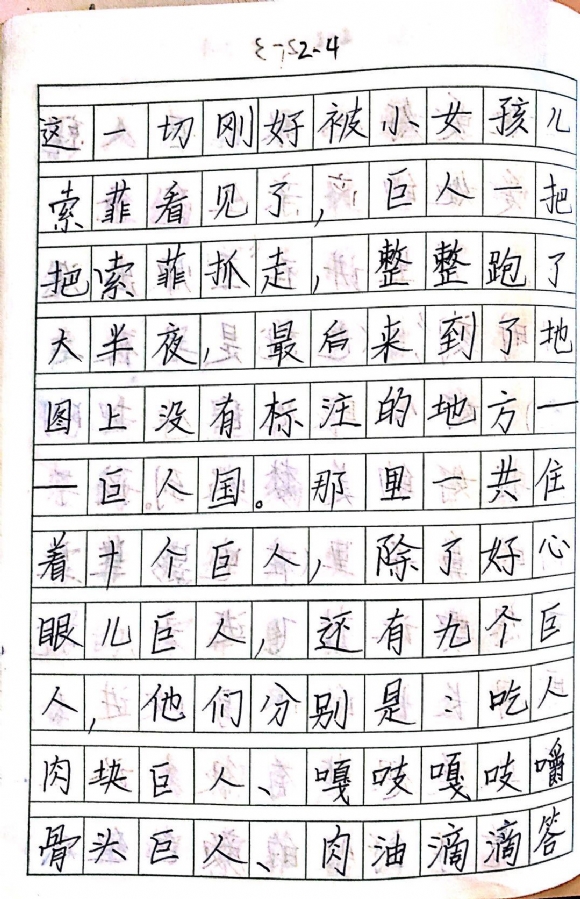 这一切刚好被小女孩儿
索菲看见了，巨人一把
把索菲抓走，整整跑了
大半夜，最后来到了地
图上没有标注的地方—
—巨人国。那里一共住
着十个巨人，除了好心
眼儿巨人，还有九个巨
人，他们分别是：吃人
肉块巨人、嘎吱嘎吱嚼
骨头巨人、肉油滴滴答